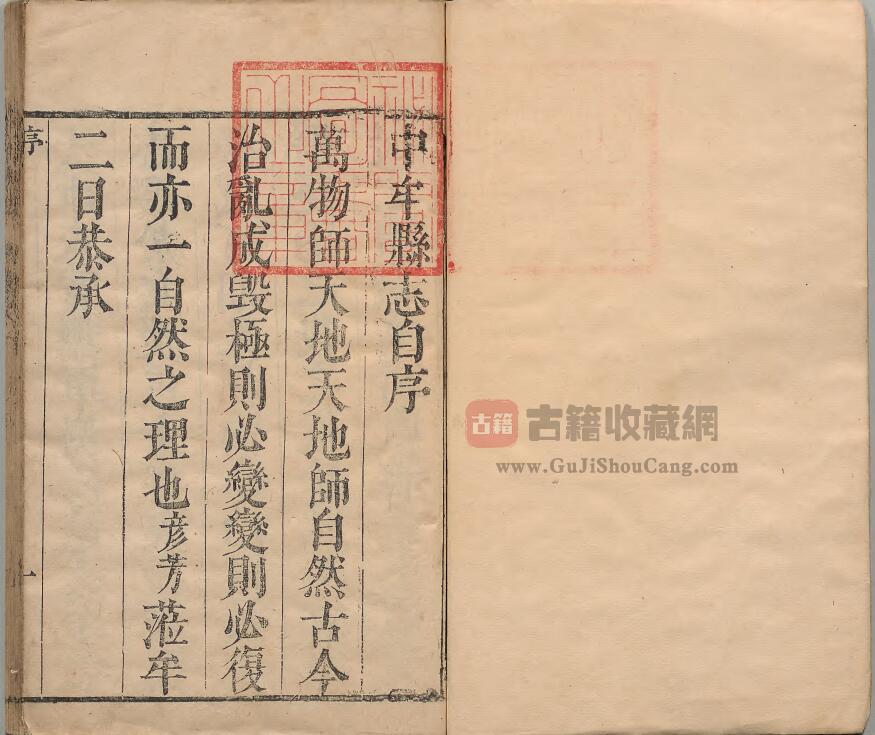 中牟縣志自序
萬物師天地天地師自然古今
治亂成毁極則必變變則必復
而亦一自然之理也彦芳蒞牟
二日恭承
序
一
古籍
古籍收藏網
www.GuJiShouCang.com